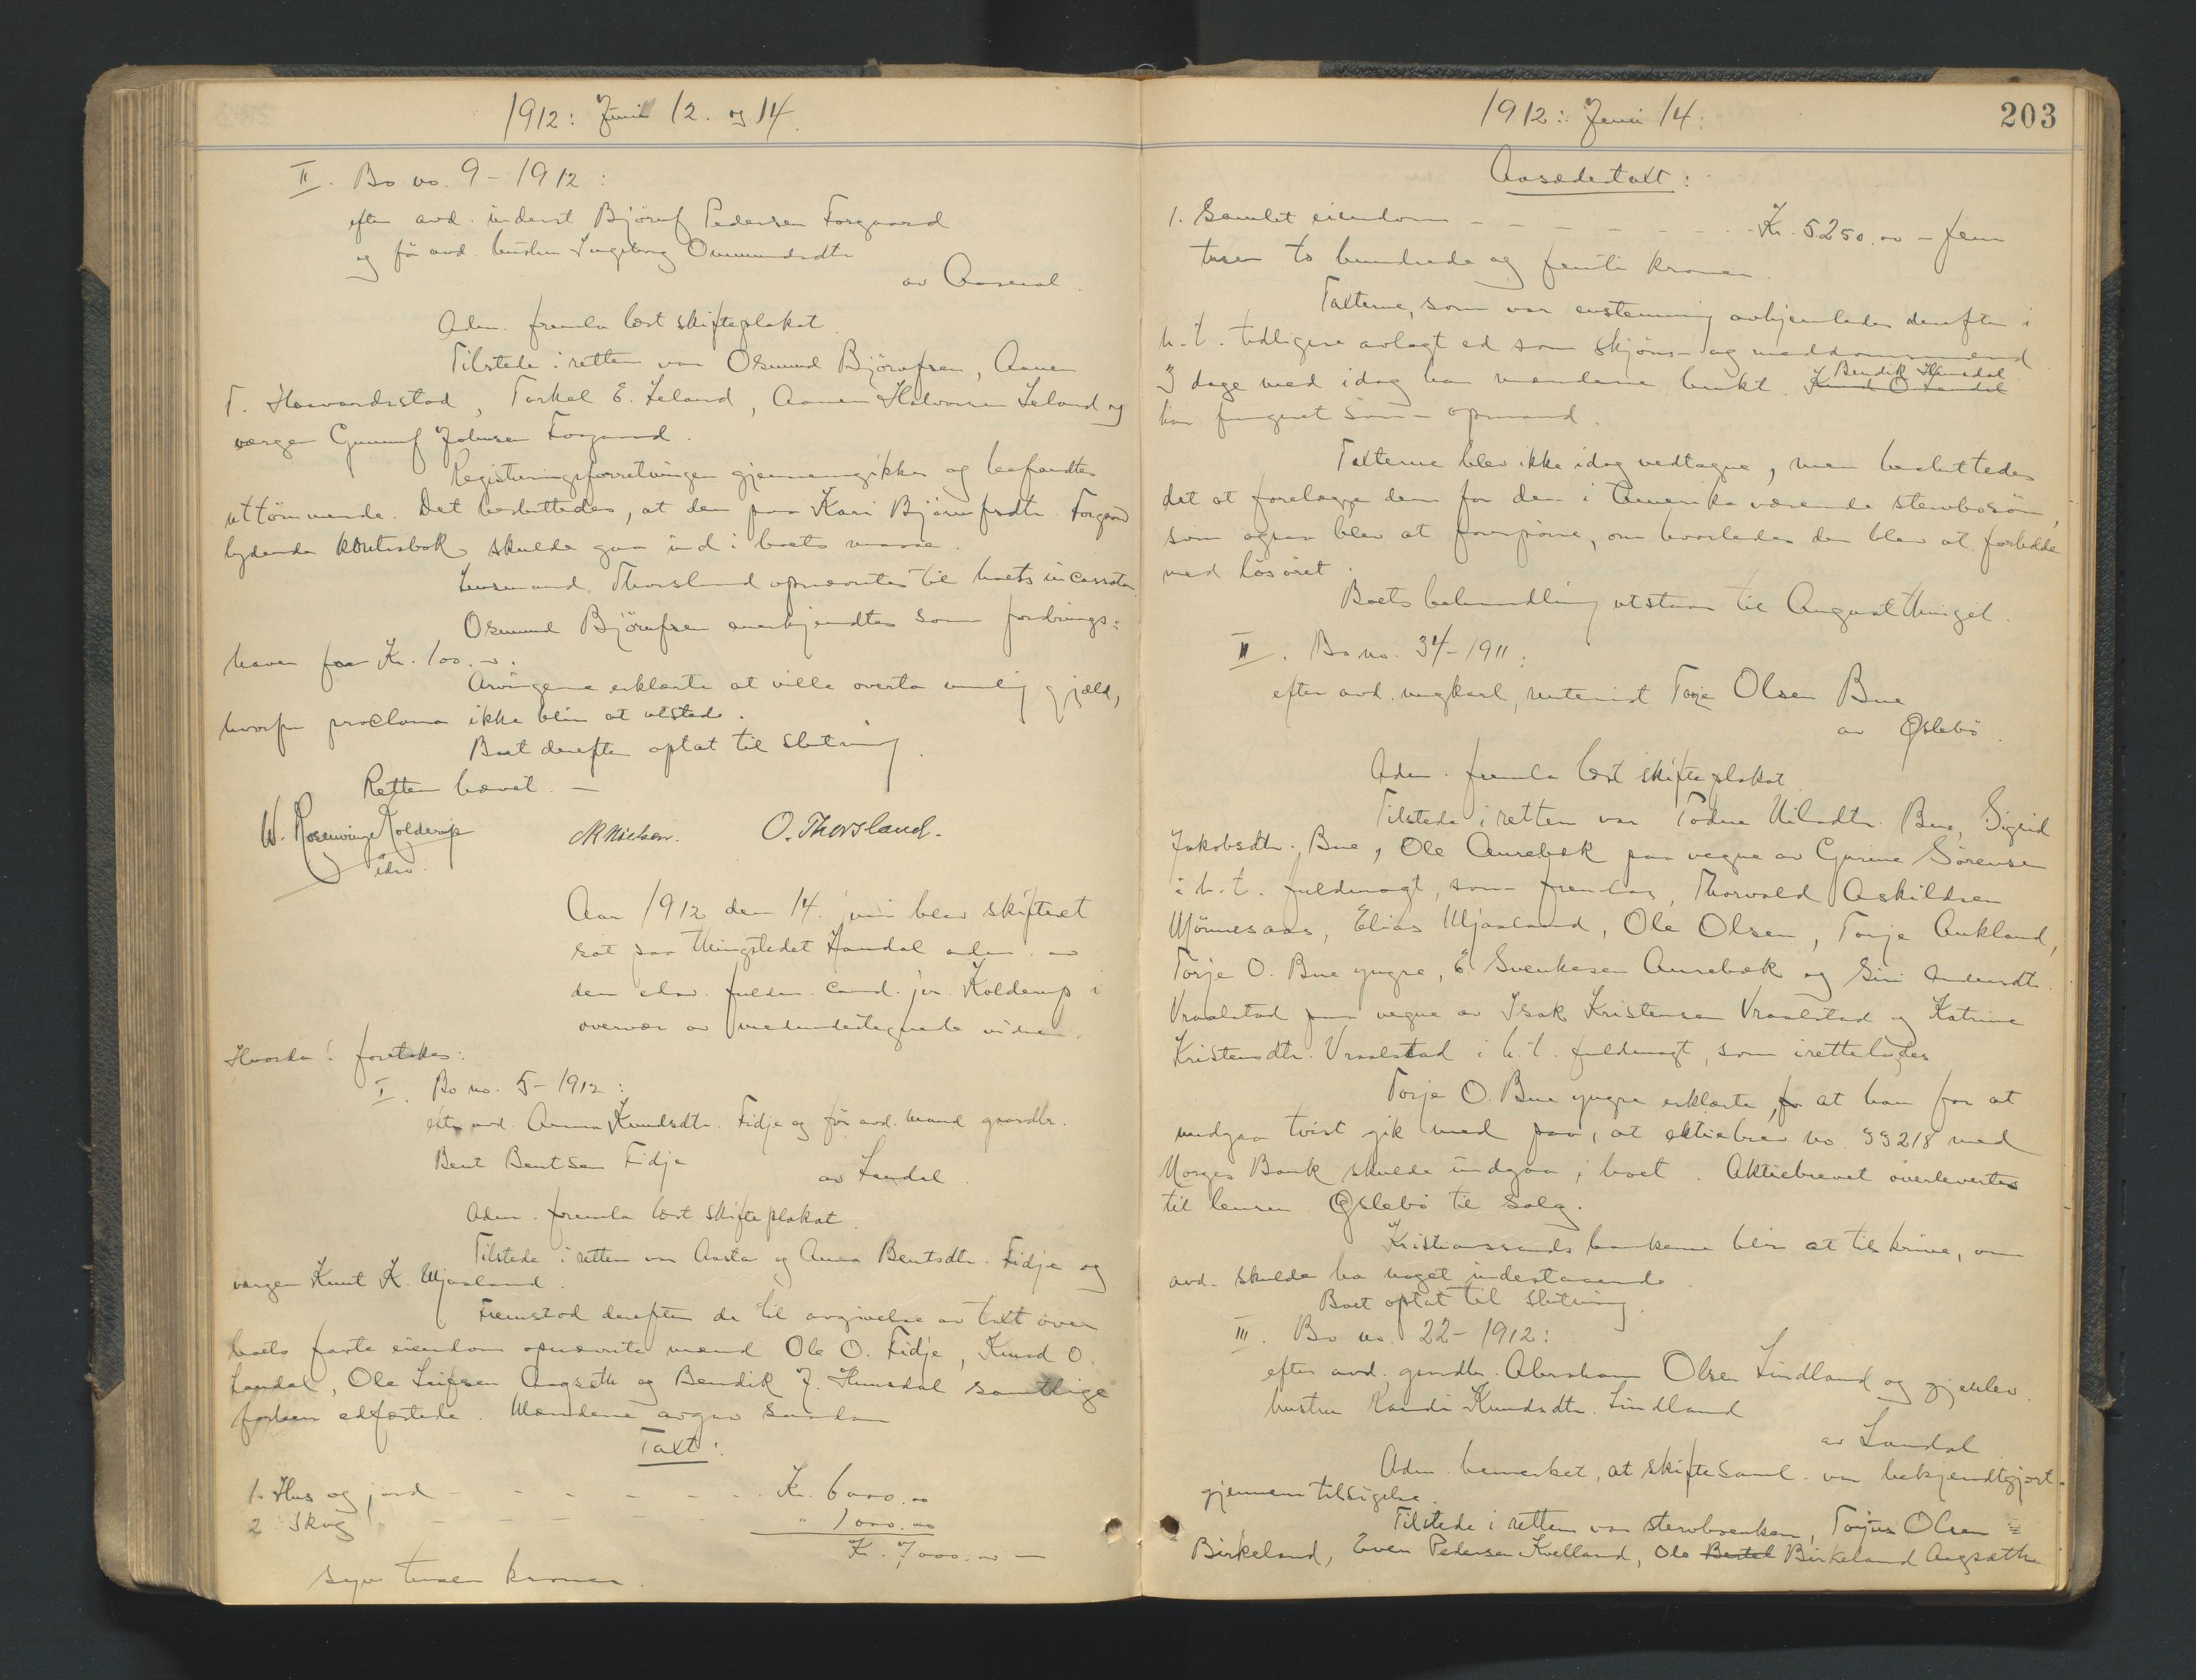 1912: Juni 12. og 14.
II. Bo no. 9 - 1912:
efter avd. inderst Björnf Pedersen Forgaard
og før avd. hustru Ingeborg Ommundsdtr.
av Aaseral.
Adm. fremla læst skifteplakat.
Tilstede i retten var Osmund Björnfsen, Aanen
T. Haavardsstad, Torkel E. Leland, Aanen Halvorsen Leland og
verge Gunnuf Johnsen Forgaard.
Registreringsforretningen gjennemgikkes og befandtes
uttömmende. Det besluttedes, at den paa Kari Björnfsdtr. Forgaard
lydende kontrabok skulde gaa ind i boets masse.
Lensmand Thorsland opnævntes til boets incassator.
Osmund Björnfsen anerkjendtes som fordrings-
haver for Kr. 100.00.
Arvingerne erklærte at ville overta mulig gjæld,
hvorfor proclama ikke blir at utstede.
Boet derefter optat til slutning.
Retten hævet. —
W. Rosenvinge Kolderup
edsv.
M Nielsen. O. Thorsland.
Aar 1912 den 14. juni blev skifteret
sat paa thingstedet Laudal adm. av
den edsv. fuldm. cand. jur. Kolderup i
overvær av medundertegnede vidner.
Hvorda! foretokes:
I. Bo no. 5 - 1912:
efter avd. Anna Knudsdtr. Fidje og før avd. mand gaardbr.
Bent Bentsen Fidje
av Laudal.
Adm. fremla læst skifteplakat.
Tilstede i retten var Aasta og Anna Bentsdtr. Fidje og
verge Knut K. Mjaaland.
Fremstod derefter de til avgivelse av takst over
boets faste eiendom opnævnte mænd Ole O. Fidje, Knud O.
Laudal, Ole Leifsen Aagseth og Bendik J. Hunsdal samtlige
forhen edfæstede. Mændene avgav saadan
Taxt:
1. Hus og jord - - - - - Kr. 6000.00
2. Skog - - - - - " 1000.00
Kr. 7000.00 —
syv tusen kroner.
1912: Juni 14.
203
Aasædestaxt:
1. Samlet eiendom - - - - - - - Kr. 5250.00 - fem
tusen to hundrede og femti kroner.
Taxterne, som var enstemmig avhjemledes derefter i
h. t. tidligere avlagt ed som skjöns- og meddomsmænd
3 dage med idag har mændene brukt. Knud O Laudal Bendik Hunsdal
har fungert som opmand.
Taxterne blev ikke idag vedtagne, men besluttedes
det at forelægge dem for den i Amerika værende stervbosön,
som ogsaa blev at forespörre, om hvorledes der blev at forholde
med lösöret.
Boets behandling utstaar til Augustthinget.
II. Bo no. 34 - 1911:
efter avd. ungkarl, rutenist Torje Olsen Bue
av Øslebö.
Adm. fremla læst skifteplakat.
Tilstede i retten var Todne Nilsdtr. Bue, Sigrid
Jakobsdtr. Bue, Ole Aurebæk paa vegne av Gurine Sörensen
i h. t. fuldmagt, som fremlas, Thorvald Askildsen
Mönnesaas, Elias Mjaaland, Ole Olsen, Torje Aukland,
Torje O. Bue yngre, E. Svenkesen Aurebæk og Siri Andersdtr.
Vraalstad paa vegne av Isak Kristensen Vraalstad og Katrine
Kristensdtr. Vraalstad i h. t. fuldmagt, som irettelagdes
Torje O. Bue yngre erklærte, for at han for at
undgaa tvist gik med paa, at aktiebrev no. 33218 med
Norges Bank skulde indgaa i boet. Aktiebrevet överlevertes
til lensm. Øslebö til salg.
Kristianssands bankerne blir at tilskrive, om
avd. skulde ha noget indestaaende.
Boet optat til slutning.
III. Bo no. 22 - 1912:
efter avd. gaardbr. Abraham Olsen Lindland og gjenlev.
hustru Randi Knudsdtr. Lindland
av Laudal
Adm. bemerket, at skiftesaml. var bekjendtgjort
gjennem tilsigelse.
Tilstede i retten var stervboenken, Torjus Olsen
Birkeland, Even Pedersen Kvelland, Ole Bertel Birkeland Aagsæth